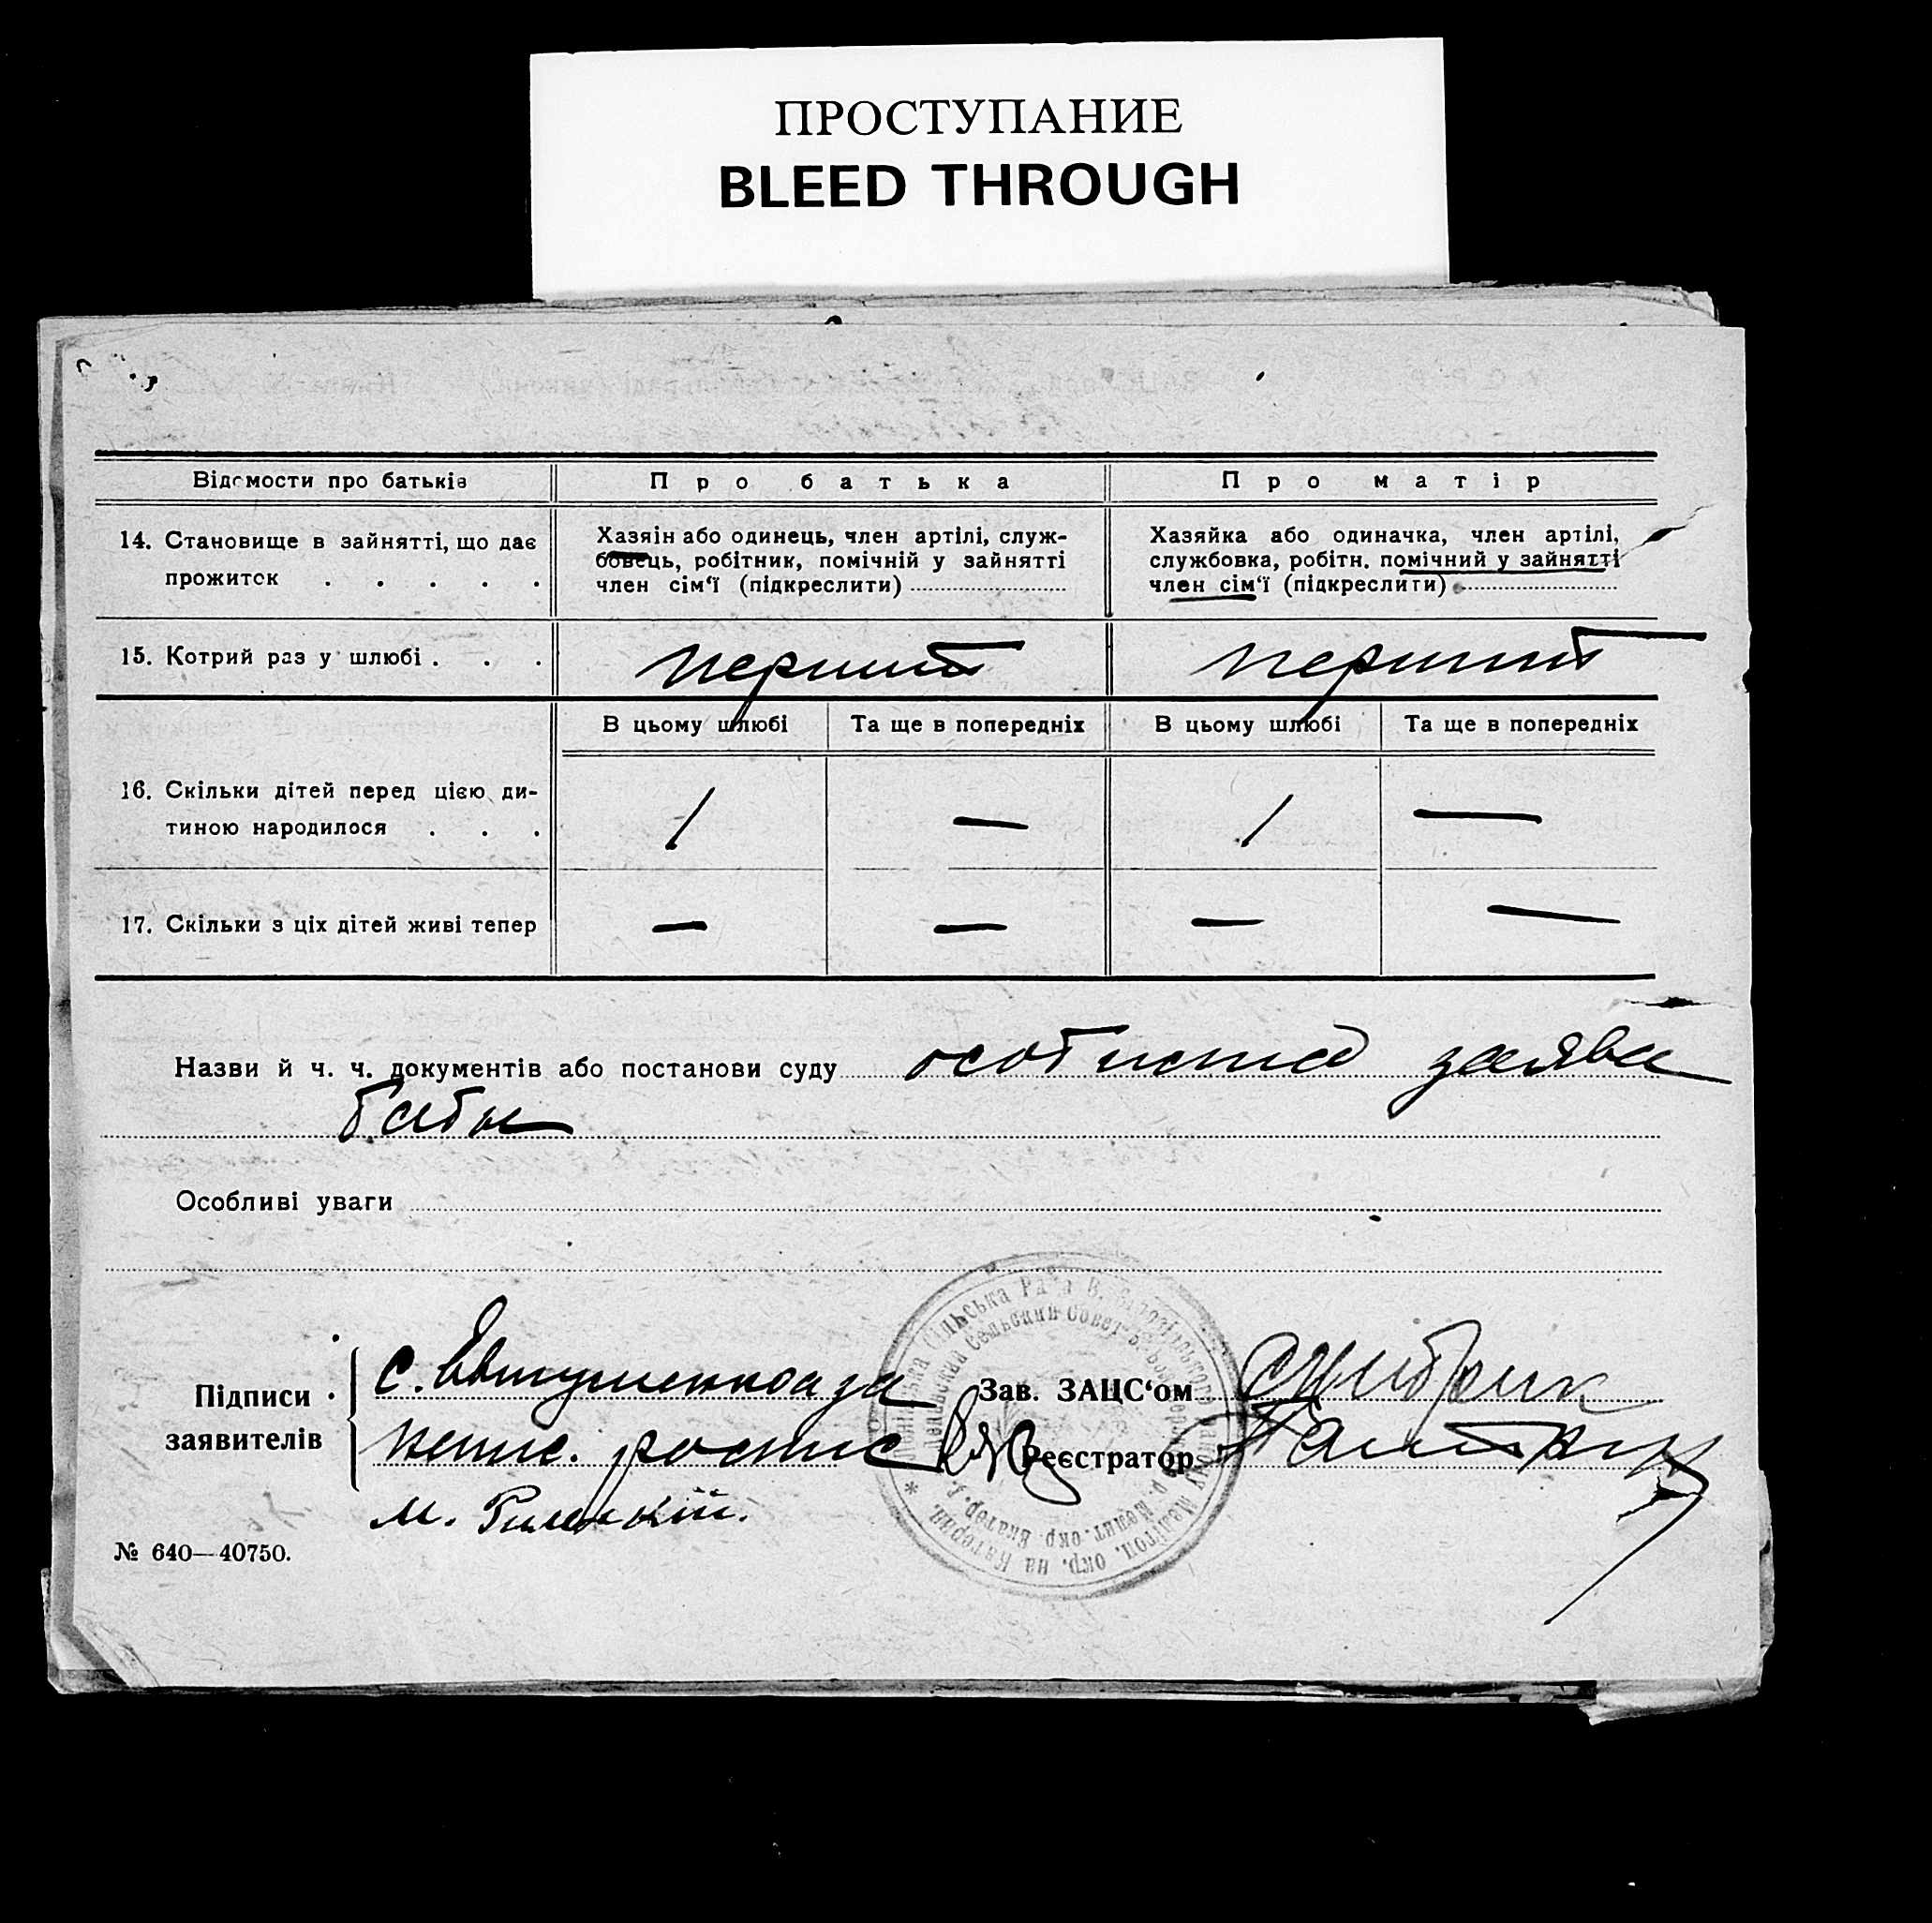 ПРОСТУПАНИЕ
BLEED THROUGH
Відомости про батьків
Про батька
Про матір
14. Становище в зайнятті, що дає
прожиток . . . . .
Хазяін або одинець, член артілі, служ-
бовець, робітник, помічній у зайнятті
член сім‘ї (підкреслити)
Хазяйка або одиначка, член артілі,
службовка, робітн. помічний у зайнятті
член сім‘ї (підкреслити)
15. Котрий раз у шлюбі . . .
перший
перший
В цьому шлюбі
Та ще в попередніх
В цьому шлюбі
Та ще в попередніх
16. Скільки дітей перед цією ди-
тиною народилося . . .
1 — 1 —
17. Скільки з ціх дітей живі тепер
— — — —
Назви й ч. ч. документів або постанови суду особиста заява
баби
Особливі уваги
Підписи
заявителів
с. Євтушенкоа за
непис. роспис
Зав. ЗАЦС‘ом
Реєстратор
№ 640—40750.